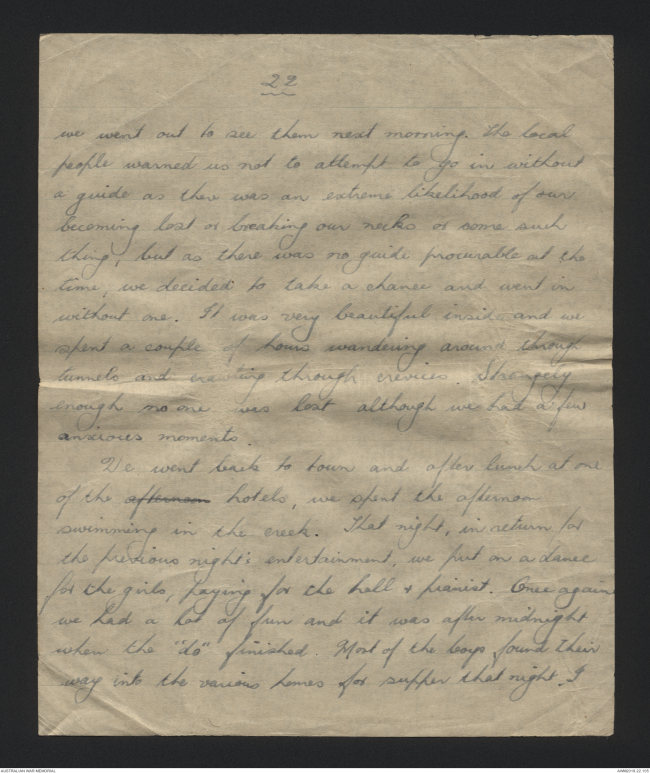 22
we went out to see them next morning. The local
people warned us not to attempt to go in without
a guide as there was an extreme likelihood of our
becoming lost or breaking our necks or some such
thing, but as there was no guide procurable at the
time, we decided to take a chance and went in
without one. It was very beautiful inside and we
spent a couple of hours wandering around through
tunnels and crawling through crevices. Strangely
enough no one was lost although we had a few
anxious moments.
We went back to town and after lunch at one
of the afternoon hotels, we spent the afternoon
swimming in the creek. That night, in return for
the previous night's entertainment, we put on a dance
for the girls, paying for the hall & pianist. Once again
we had a lot of fun and it was after midnight
when the "do" finished. Most of the boys found their
way into the various homes for supper that night. I
AUSTRALIAN WAR MEMORIAL